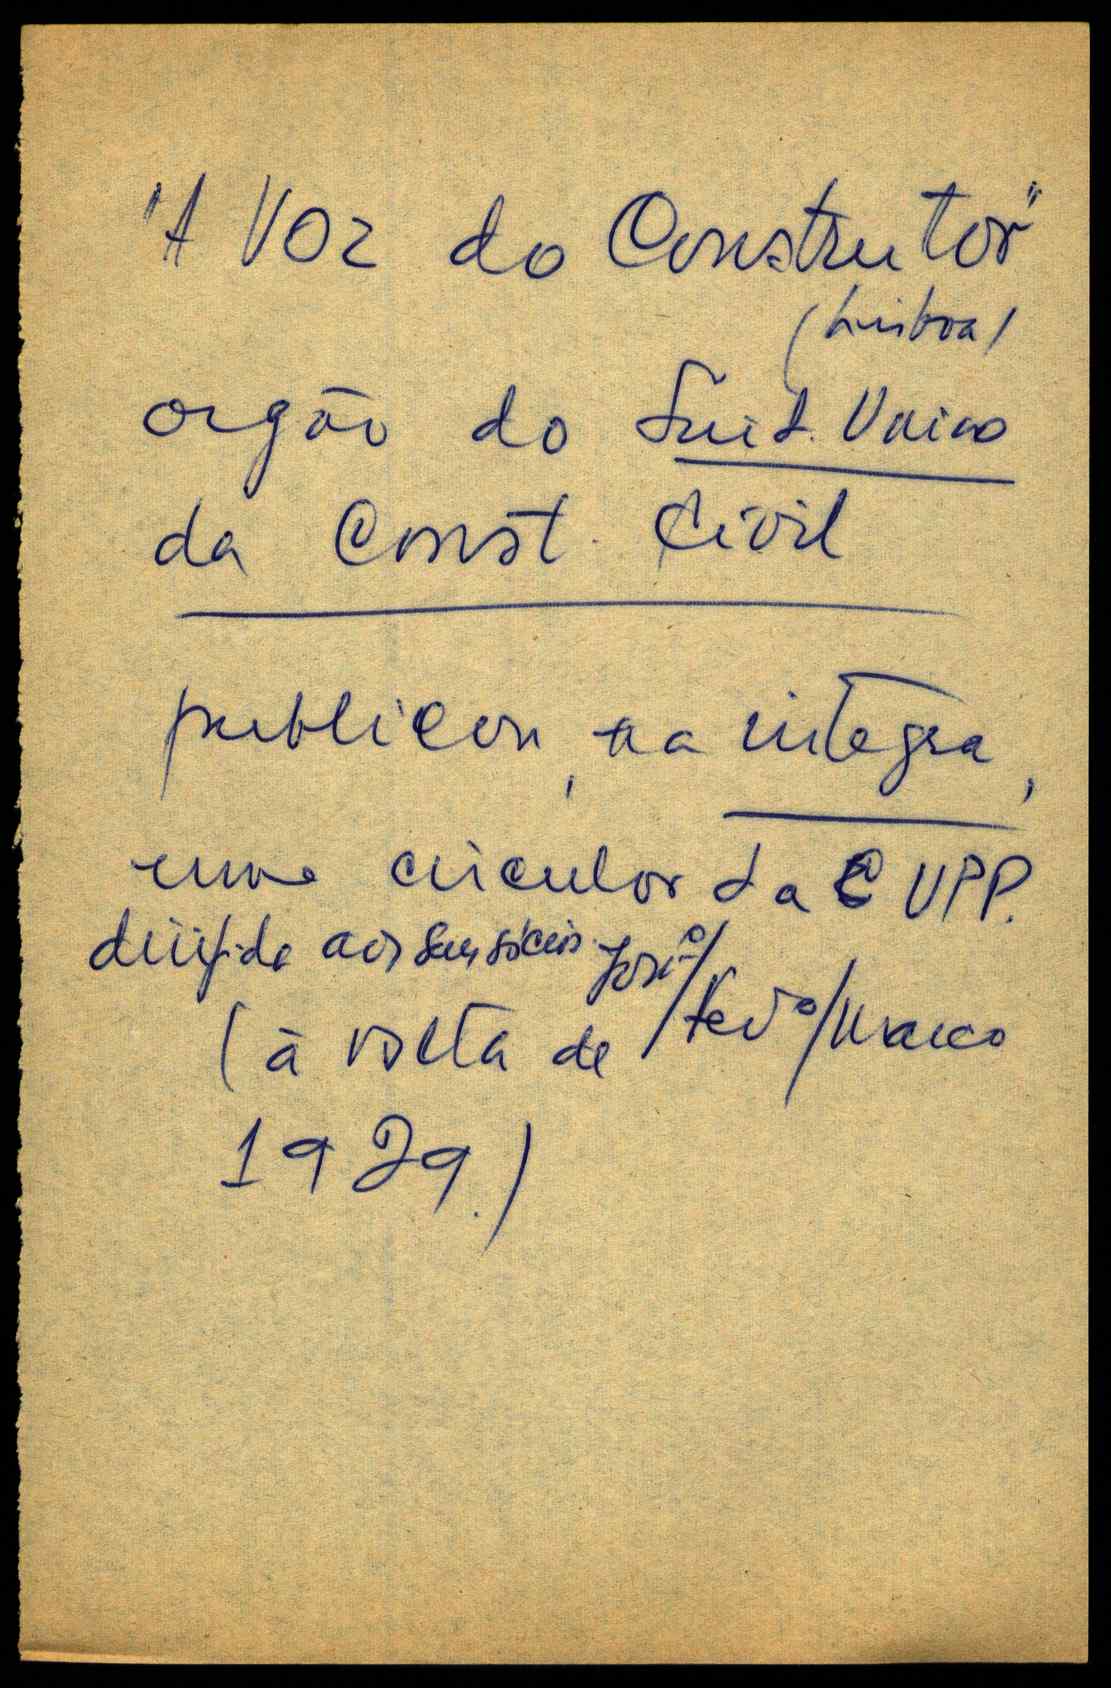 "A Voz do Construtor"
(Lisboa)
orgão do Sind. Unico
da Const. Civil
publicou, na integra,
uma circular da CUPP.
dirigida aos seus sócios. Janº/
(à volta de /Fevº/Março
1929.)